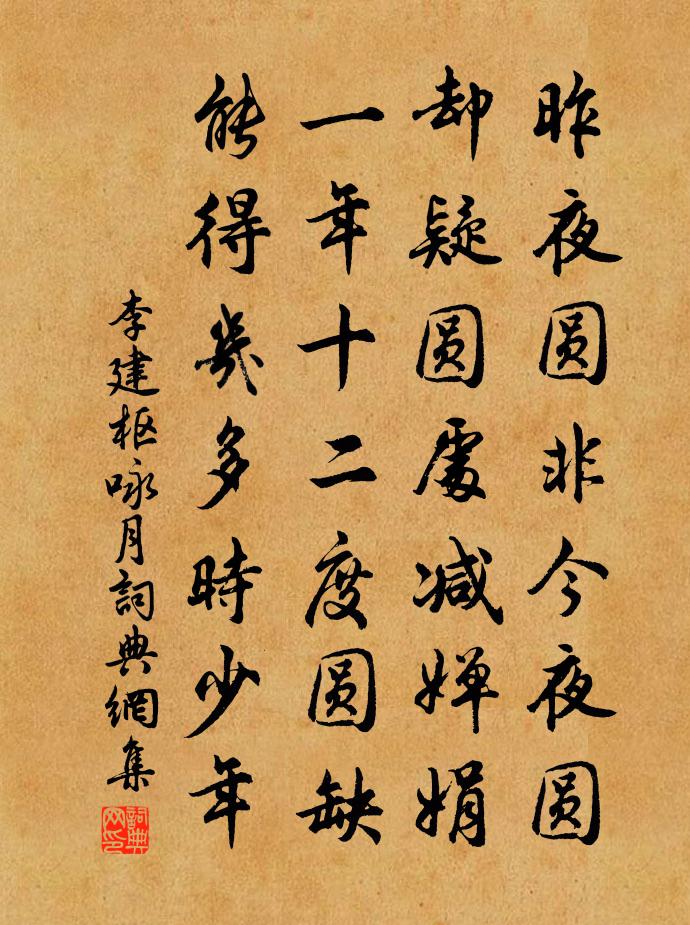 昨夜圆非今夜圆
却疑圆處减婵娟
一年十二度圆缺
能得幾多時少年
李建枢咏月詞典網集
詞典网印